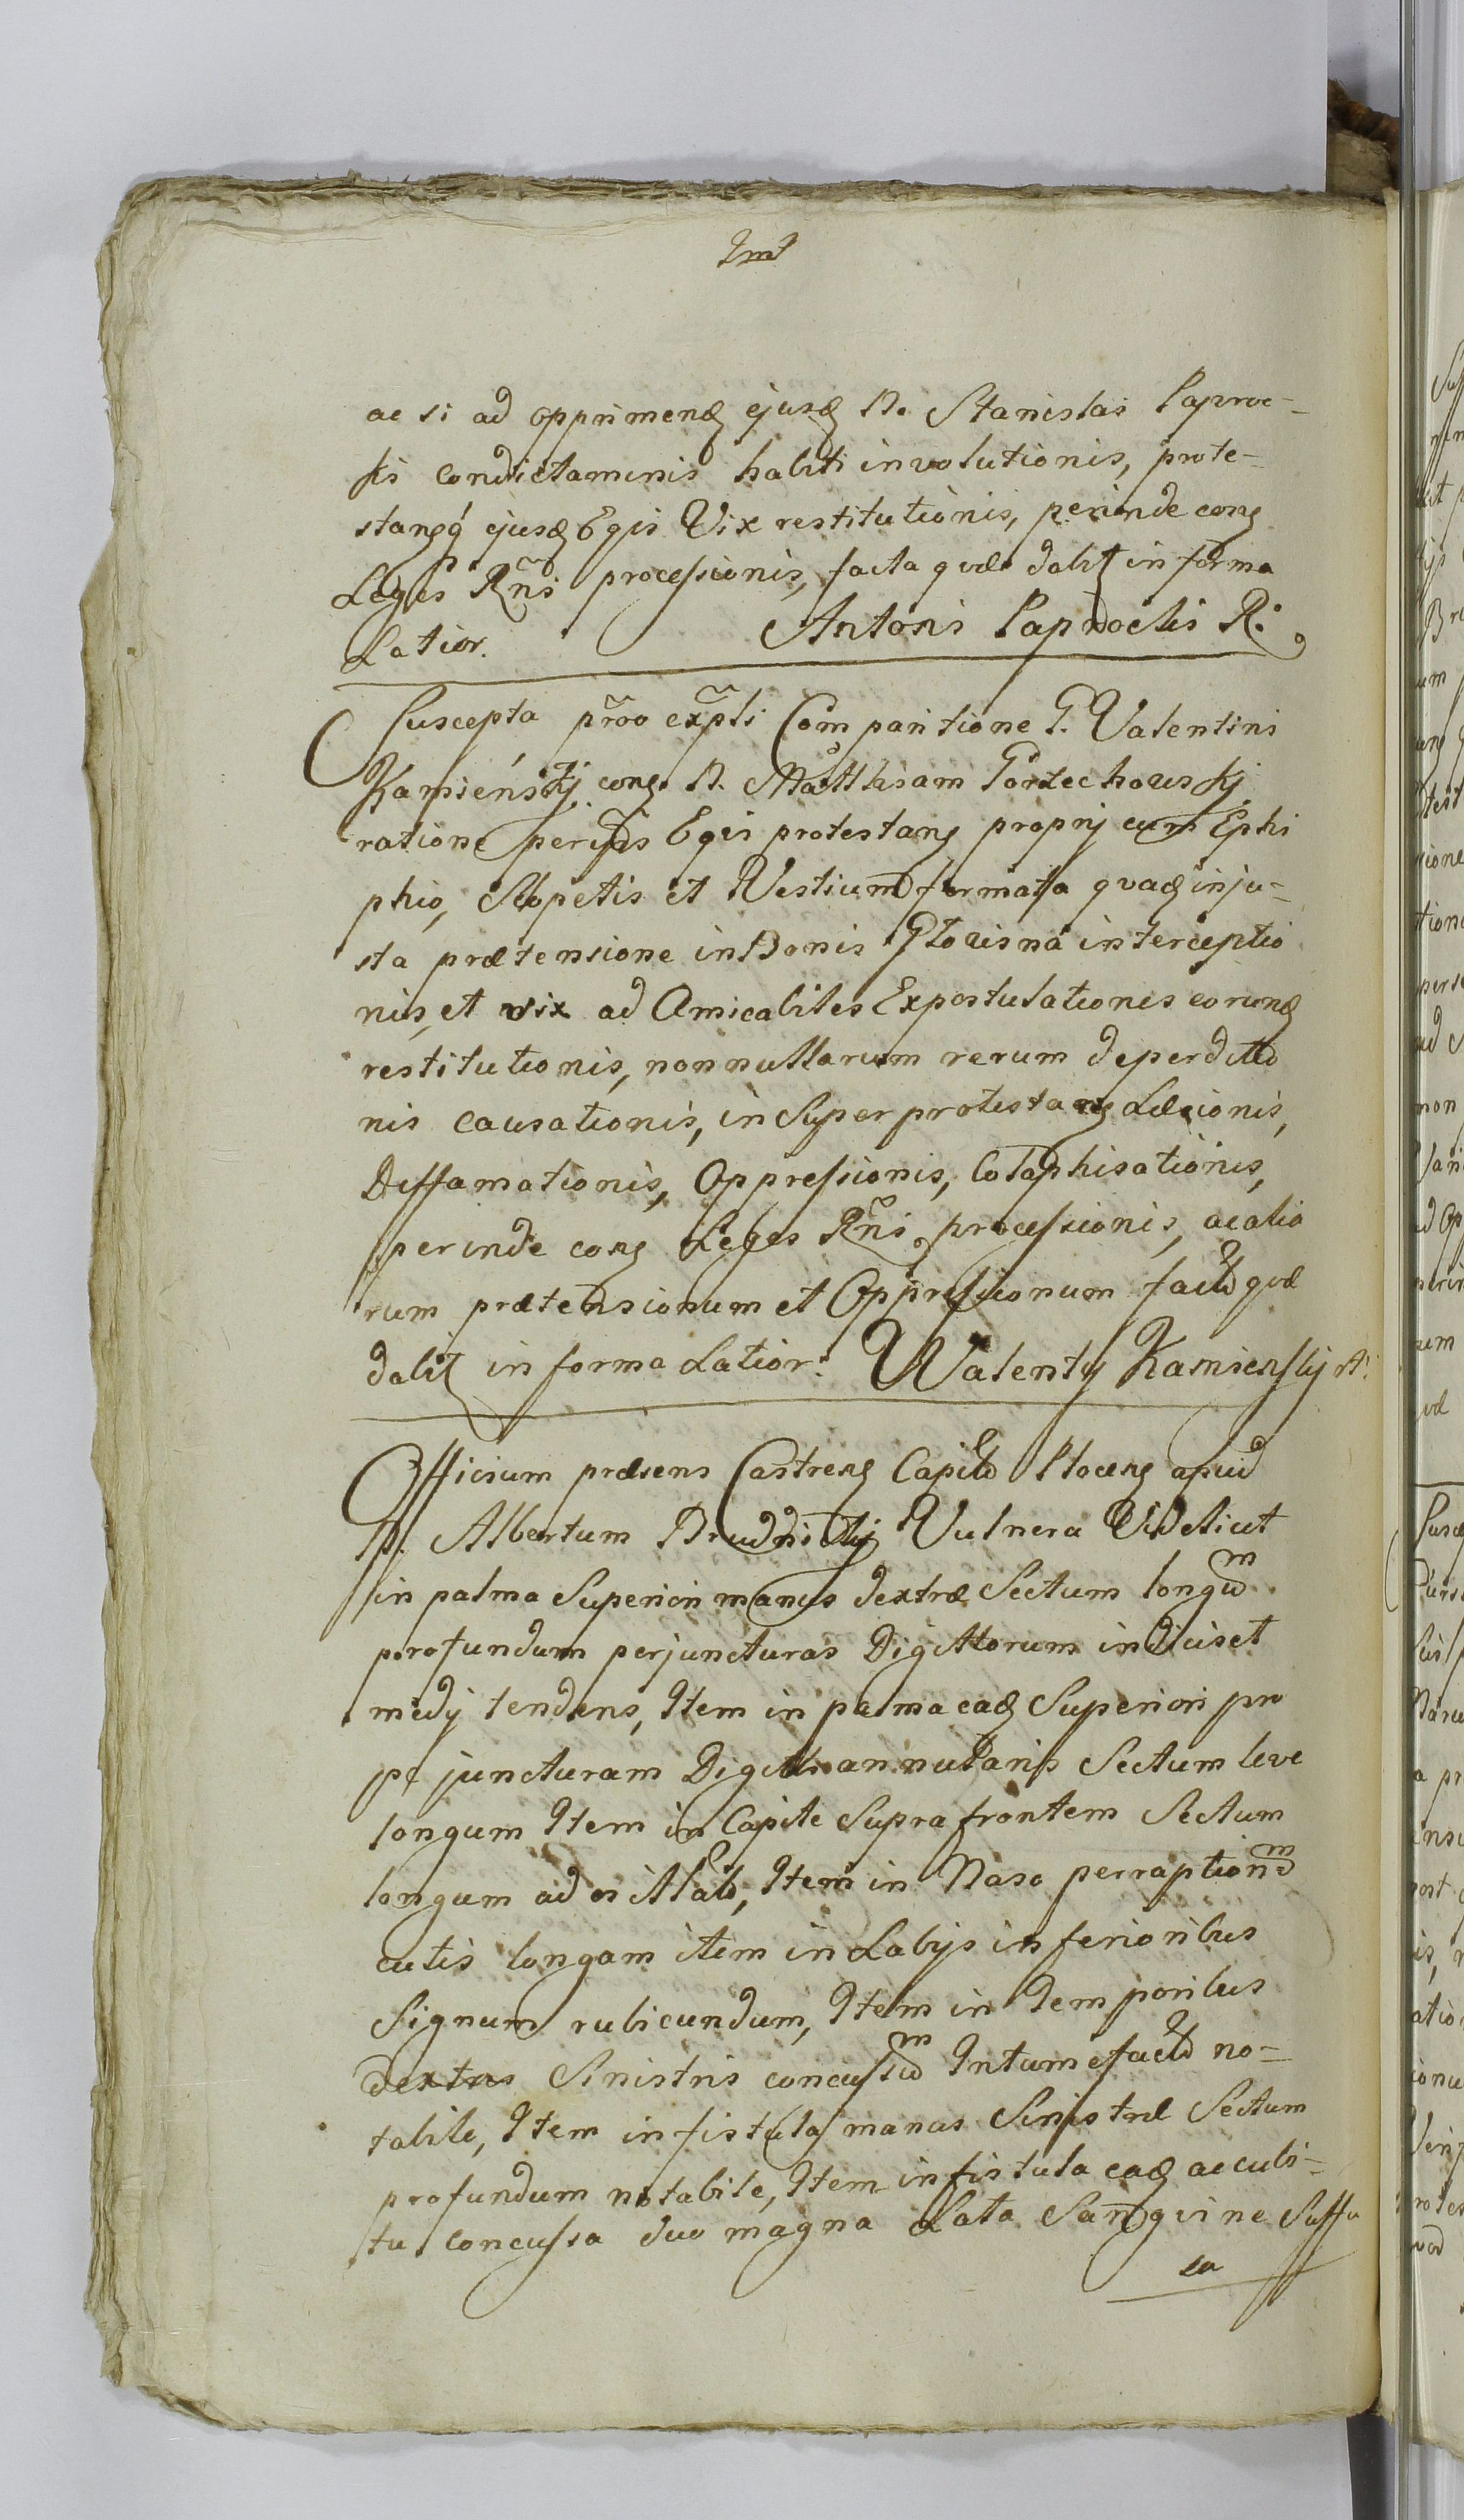 ac si ad opprimen ejusd N. Stanislai Paproc-
ki condictaminis habiti involutionis, prote-
stang ejusd Eqis Vix restitutionis, perinde cong
Leges Rñi processionis, facta quæ dabit in forma
Latior. Antoni Paprocki R.
Suscepta Comparitione G. Valentini
Kamieński cong N. Matthiam Gorzechowskj
ratione Eqis protestang proprij cum Ephi
phio, Sclopetis et Vestium formata quad inju-
sta prætensione in Bonis interceptio
nis, et vix ad Amicabiles Expostulationes eorund
restitutionis, nonnullarum rerum deperditio
nis causationis, in Super protestang Læsionis,
Diffamationis, Oppressionis, Colaphisationis,
perinde cong Leges Rñi processionis, ac alio
rum prætensionum et Oppressionum facta quæ
dabit in forma Latior. Walenty Kamienskj
Officium præsens Castreng Capitle Ploceng apud
N. Albertum Brudnickj Vulnera Videlicet
in palma Superiori manus dextræ Sectum longum
profundum per juncturas Digittorum indicis et
medij tendens, Item in palma ead Superiori pro
pe juncturam Digitti annularis Sectum leve
longum Item in Capite Supra frontem Sectum
longum ad os Item in Naso perraptionem
cutis longam item in Labijs inferioribus
Signum rubicundum, Item in Temporibus
dextris Sinistris concussum Intumefactum no-
tabile, Item in fistula manus Sinistræ Sectum
profundum notabile, Item in fistula ead ac cubi-
tu concussa duo magna Lata Sangvine Suffu
sa